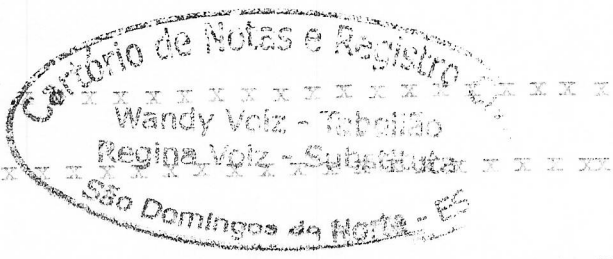 Cartório de Notas e Registro
x x x x x x x x x x x x x
Wandy Volz - Tabelião
Regina Volz - Substituta
x x x x x x x x x x x x xx
São Domingos do Norte - ES